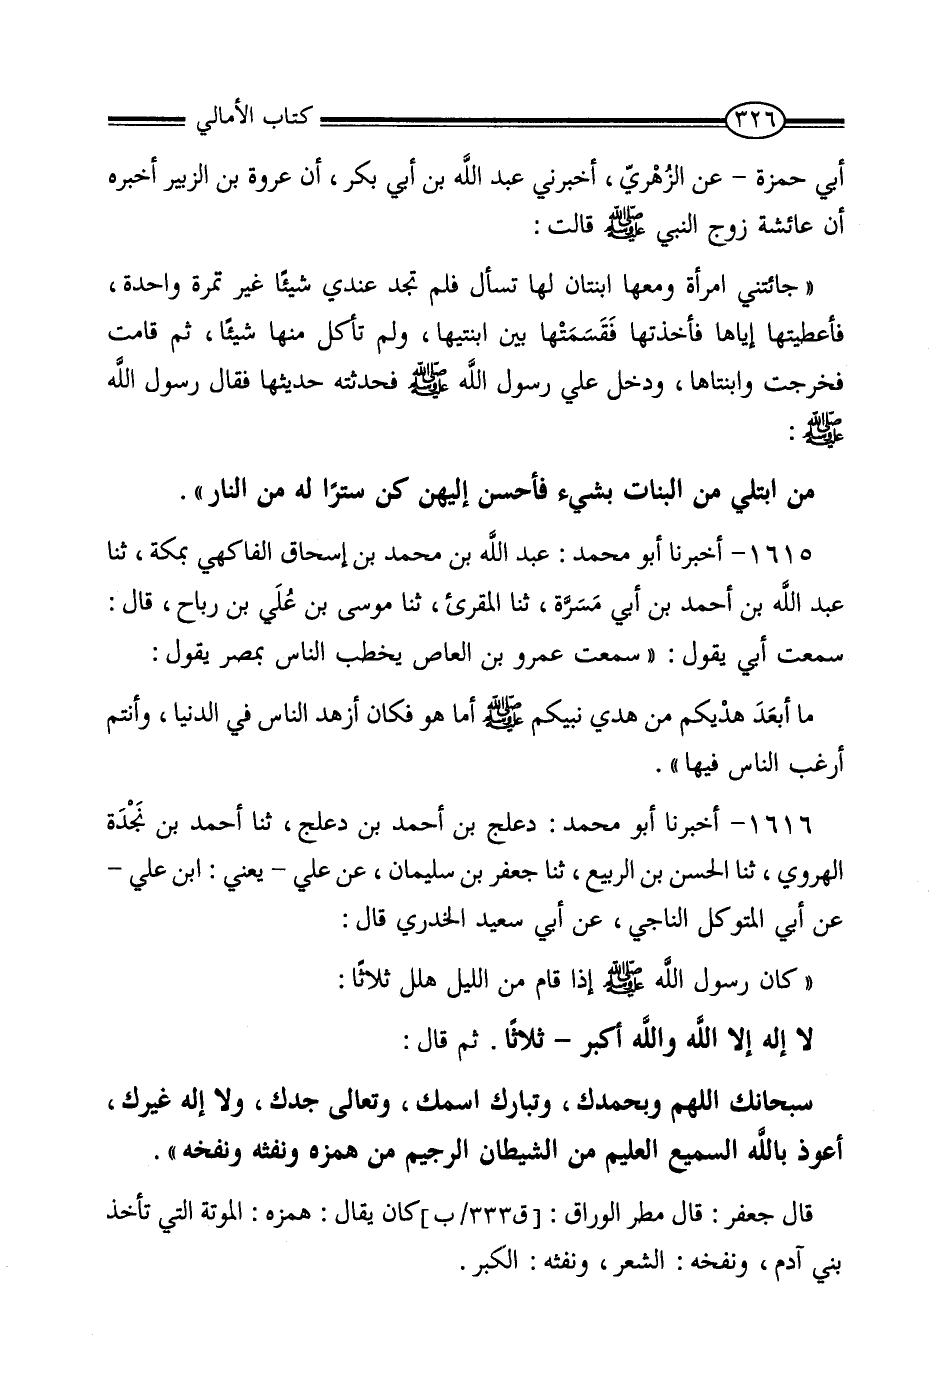 ٣٢٦ كتاب الأمالي
أبي حمزة - عن الزُهْريّ ، أخبرني عبد اللَّه بن أبي بكر ، أن عروة بن الزبير أخبره
أن عائشة زوج النبي ﷺ قالت :
« جائتني امرأة ومعها ابنتان لها تسأل فلم تجد عندي شيئًا غير تمرة واحدة ،
فأعطيتها إياها فأخذتها فَقَسَمَتْها بين ابنتيها ، ولم تأكل منها شيئًا ، ثم قامت
فخرجت وابنتاها ، ودخل علي رسول اللَّه ﷺ فحدثته حديثها فقال رسول اللَّه
ﷺ :
من ابتلي من البنات بشيء فأحسن إليهن كن سترًا له من النار» .
١٦١٥- أخبرنا أبو محمد : عبد اللَّه بن محمد بن إسحاق الفاكهي بمكة ، ثنا
عبد اللَّه بن أحمد بن أبي مَسَرَّة ، ثنا المقرئ ، ثنا موسى بن عُلَي بن رباح ، قال :
سمعت أبي يقول : « سمعت عمرو بن العاص يخطب الناس بمصر يقول :
ما أبعَدَ هدْيكم من هدي نبيكم ﷺ أما هو فكان أزهد الناس في الدنيا ، وأنتم
أرغب الناس فيها» .
١٦١٦- أخبرنا أبو محمد : دعلج بن أحمد بن دعلج ، ثنا أحمد بن نَجْدَة
الهروي ، ثنا الحسن بن الربيع ، ثنا جعفر بن سليمان ، عن علي - يعني : ابن علي -
عن أبي المتوكل الناجي ، عن أبي سعيد الخدري قال :
« كان رسول اللَّه ﷺ إذا قام من الليل هلل ثلاثًا :
لا إله إلا اللَّه واللَّه أكبر - ثلاثًا . ثم قال :
سبحانك اللهم وبحمدك ، وتبارك اسمك ، وتعالى جدك ، ولا إله غيرك ،
أعوذ باللَّه السميع العليم من الشيطان الرجيم من همزه ونفثه ونفخه» .
قال جعفر : قال مطر الوراق : [ق٣٣٣/ ب] كان يقال : همزه : الموتة التي تأخذ
بني آدم ، ونفخه : الشعر ، ونفثه : الكبر .